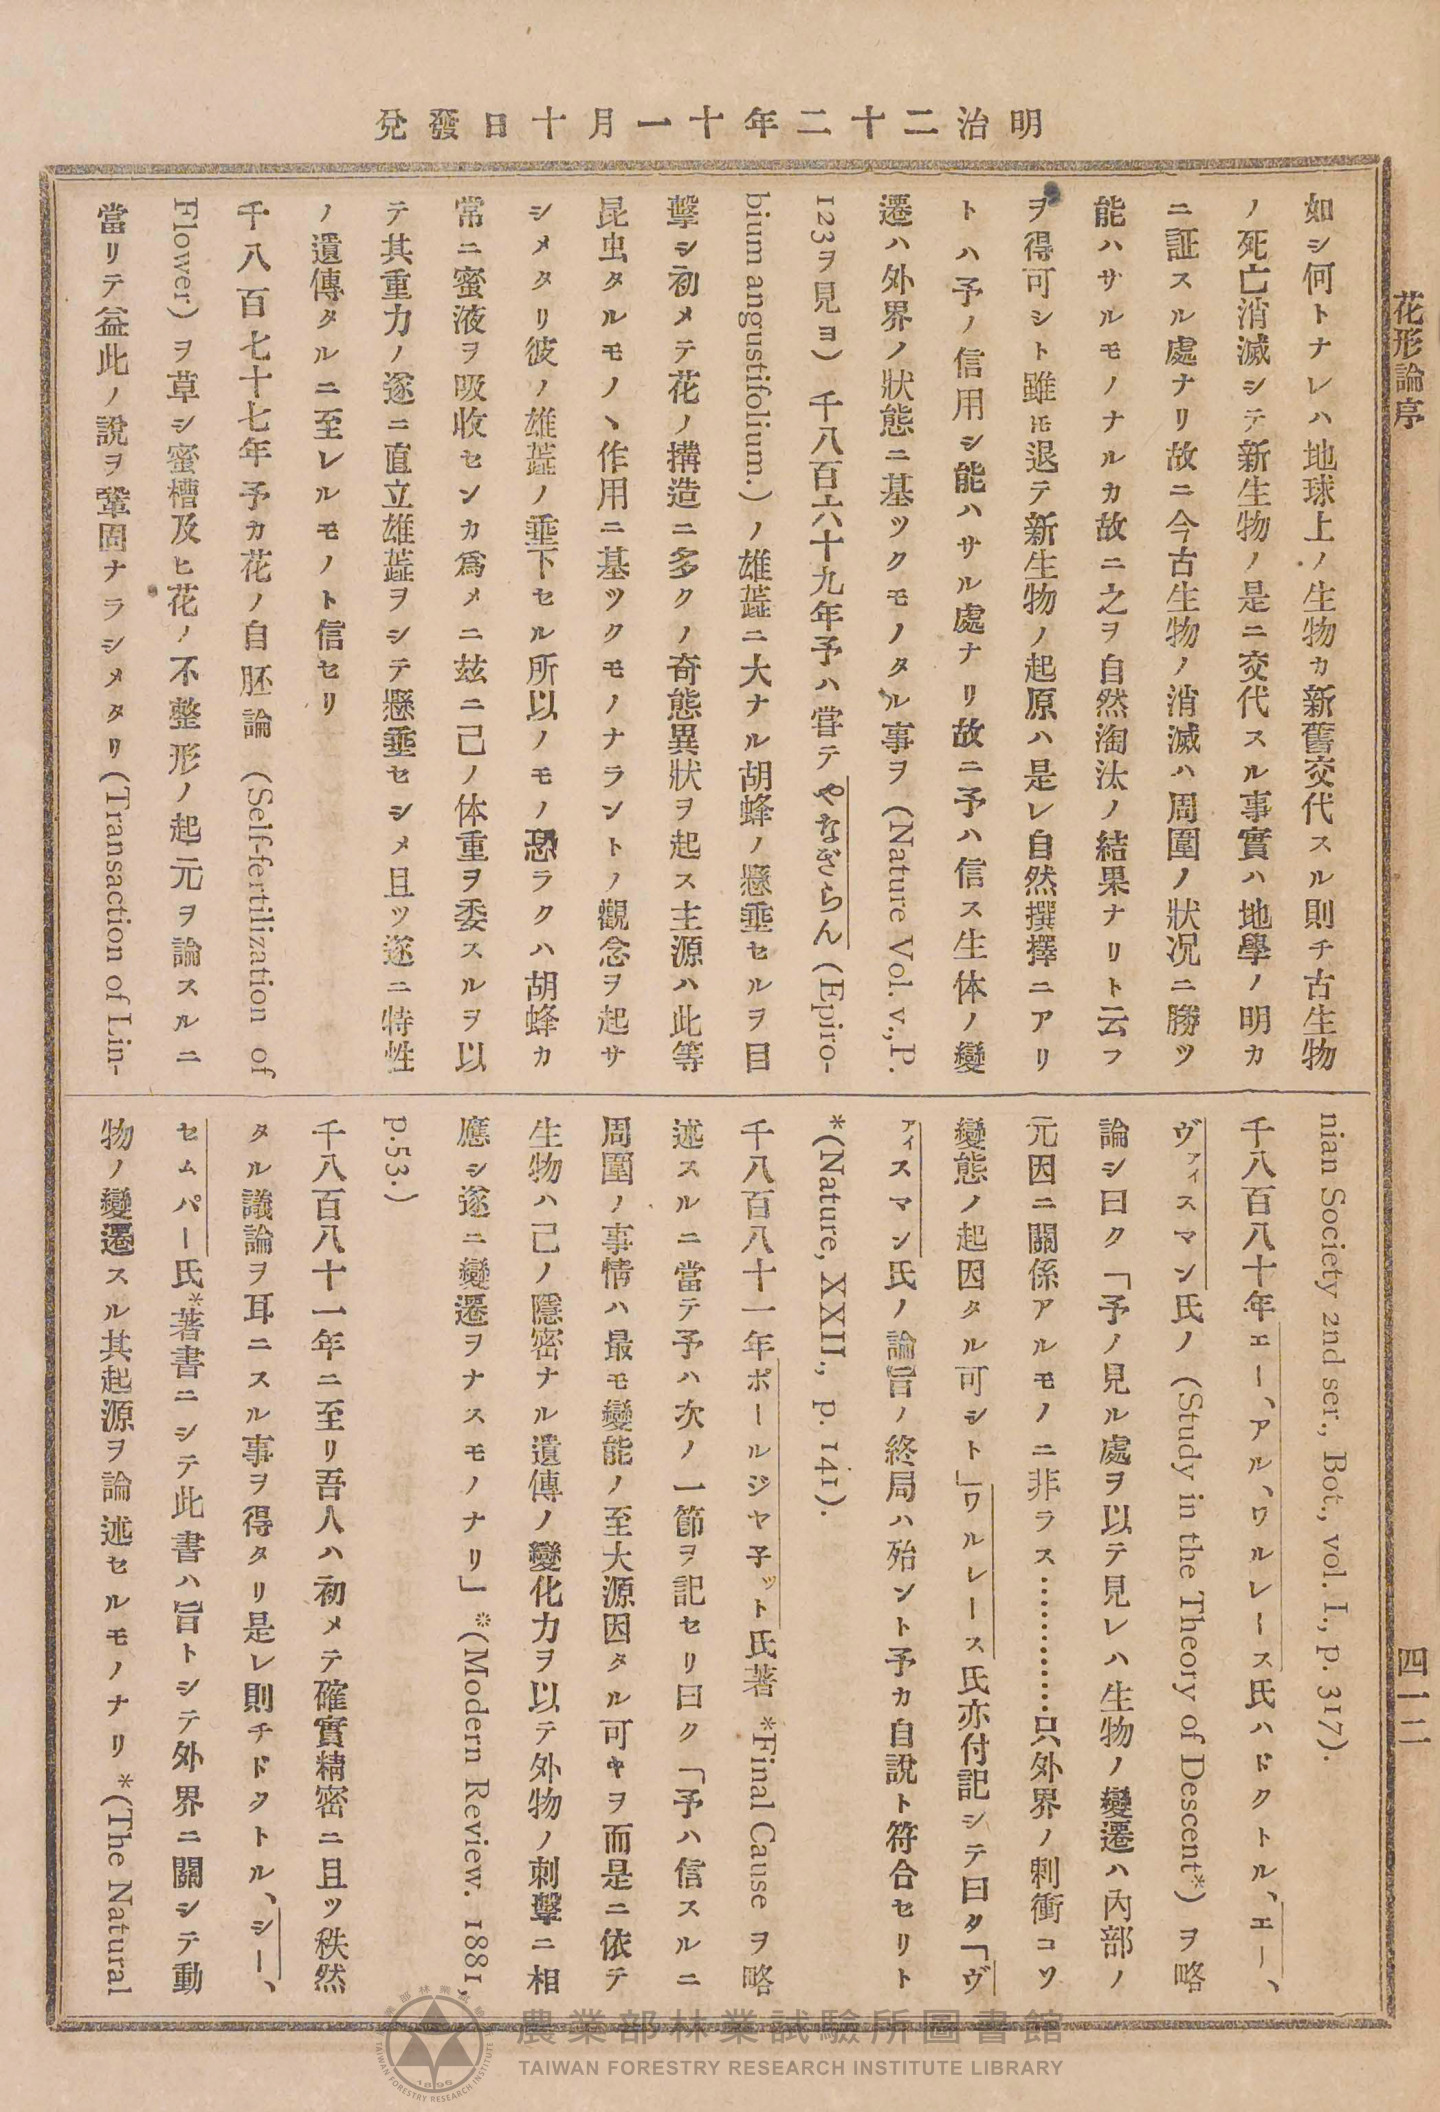 明治二十二年十一月十日發兌
花形論序
四一二
如シ何トナレハ地球上ノ生物カ新舊交代スル則チ古生物
ノ死亡消滅シテ新生物ノ是ニ交代スル事實ハ地學ノ明カ
ニ証スル處ナリ故ニ今古生物ノ消滅ハ周圍ノ狀況ニ勝ツ
能ハサルモノナルカ故ニ之ヲ自然淘汰ノ結果ナリト云フ
ヲ得可シト雖𪜈退テ新生物ノ起原ハ是レ自然撰擇ニアリ
トハ予ノ信用シ能ハサル處ナリ故ニ予ハ信ス生体ノ變
遷ハ外界ノ狀態ニ基ツクモノタル事ヲ (Nature Vol. v., P.
123ヲ見ヨ) 千八百六十九年予ハ嘗テやなぎらん (Epiro-
bium angustifolium.) ノ雄蘂ニ大ナル胡蜂ノ懸垂セルヲ目
擊シ初メテ花ノ搆造ニ多クノ奇態異狀ヲ起ス主源ハ此等
昆虫タルモノヽ作用ニ基ツクモノナラントノ觀念ヲ起サ
シメタリ彼ノ雄蘂ノ垂下セル所以ノモノ恐ラクハ胡蜂カ
常ニ蜜液ヲ吸收センカ爲メニ玆ニ己ノ体重ヲ委スルヲ以
テ其重力ノ遂ニ直立雄蘂ヲシテ懸垂セシメ且ツ遂ニ特性
ノ遺傳タルニ至レルモノト信セリ
千八百七十七年予カ花ノ自胚論 (Self-fertilization of
Flower) ヲ草シ蜜槽及ヒ花ノ不整形ノ起元ヲ論スルニ
當リテ益此ノ說ヲ鞏固ナラシメタリ (Transaction of Lin-
nian Society 2nd ser., Bot., vol. I., p. 317).
千八百八十年エー、アル、ワルレース氏ハドクトル、エー、
ヴァイスマン氏ノ (Study in the Theory of Descent*) ヲ略
論シ曰ク「予ノ見ル處ヲ以テ見レハ生物ノ變遷ハ內部ノ
元因ニ關係アルモノニ非ラス…………只外界ノ刺衝コソ
變態ノ起因タル可シト」ワルレース氏亦付記シテ曰タ「ヴ
ァイスマン氏ノ論旨ノ終局ハ殆ント予カ自說ト符合セリト
*(Nature, XXII., p. 141).
千八百八十一年ポールジヤ子ット氏著 *Final Cause ヲ略
述スルニ當テ予ハ次ノ一節ヲ記セリ曰ク「予ハ信スルニ
周圍ノ事情ハ最モ變能ノ至大源因タル可キヲ而是ニ依テ
生物ハ己ノ隱密ナル遺傳ノ變化力ヲ以テ外物ノ刺擊ニ相
應シ遂ニ變遷ヲナスモノナリ」*(Modern Review. 1881,
p.53.)
千八百八十一年ニ至リ吾人ハ初メテ確實精密ニ且ツ秩然
タル議論ヲ耳ニスル事ヲ得タリ是レ則チドクトル、シー、
セムパー氏*著書ニシテ此書ハ旨トシテ外界ニ關シテ動
物ノ變遷スル其起源ヲ論述セルモノナリ *(The Natural
農業部林業試驗所圖書館
TAIWAN FORESTRY RESEARCH INSTITUTE LIBRARY